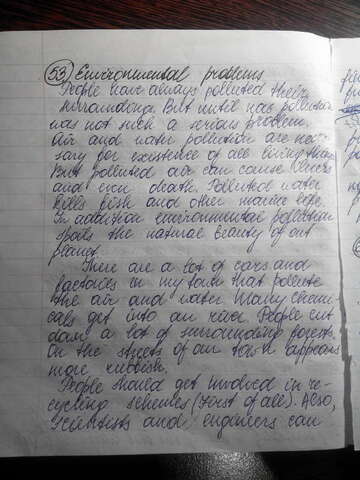 53 Environmental problems
People have always polluted their
surroundings. But until now pollution
was not such a serious problem.
Air and water pollution are neces-
sary for existence of all living things
But polluted air can cause illness
and even death. Polluted water
kills fish and other marine life.
In addition environmental pollution
spoils the natural beauty of our
planet.
There are a lot of cars and
factories in my town that pollute
the air and water. Many chemi-
cals get into our river. People cut
down a lot of surrounding forests.
On the streets of our town appears
more rubbish.
People should get involved in re-
cycling schemes (first of all). Also,
scientists and engineers can